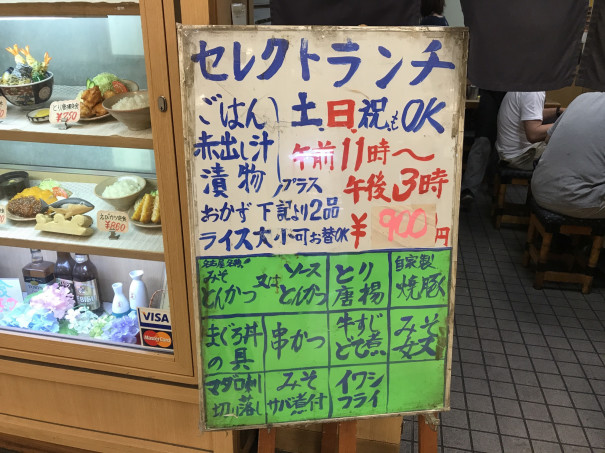 セレクトランチ
ごはん 土、日、祝もOK
赤出し汁 午前11時〜
漬物 プラス 午後3時
おかず下記より2品 ¥900円
ライス大小可お替OK
みそとんかつ 又は ソースとんかつ
とり唐揚
自家製焼豚
まぐろ丼の具
串かつ
牛すじどて煮
みそ
マグロ刺切落し
みそサバ煮付
イワシフライ
VISA
MasterCard